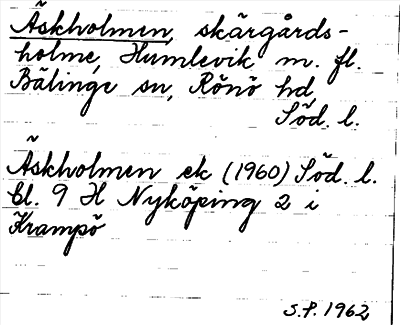 Äskholmen, skärgårds-
holme, Humlevik m. fl.
Bälinge sn, Rönö hd
Söd. l.
Äskholmen ek (1960) Söd. l.
bl. 9 H Nyköping 2 i
Krampö
S.P. 1962